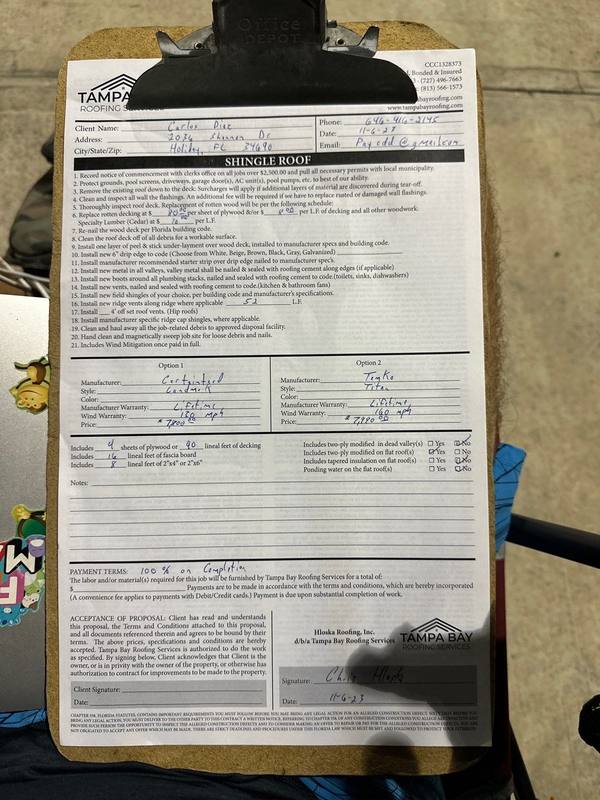 Office
DEPOT
CCC1328373
Bonded & Insured
(727) 496-7663
(813) 566-1573
www.tampabayroofing.com
TAMPA
ROOFING
Client Name: Carlos Diaz
Address: 2036 Shannon Dr
City/State/Zip: Holiday, FL 34690
Phone: 646-416-2145
Date: 11-6-23
Email:
SHINGLE ROOF
1. Record notice of commencement with clerks office on all jobs over $2,500.00 and pull all necessary permits with local municipality.
2. Protect grounds, pool screens, driveways, garage door(s), AC unit(s), pool pumps, etc. to best of our ability.
3. Remove the existing roof down to the deck. Surcharges will apply if additional layers of material are discovered during tear-off.
4. Clean and inspect all wall flashings. An additional fee will be required if we have to replace rusted or damaged wall flashings.
5. Thoroughly inspect roof deck. Replacement of rotten wood will be per the following schedule:
6. Replace rotten decking at $ 80.00 per sheet of plywood &/or $ 8.00 per L.F. of decking and all other woodwork.
Specialty Lumber (Cedar) at $ per L.F.
7. Re-nail the wood deck per Florida building code.
8. Clean the roof deck off of all debris for a workable surface.
9. Install one layer of peel & stick under-layment over wood deck, installed to manufacturer specs and building code.
10. Install new 6" drip edge to code (Choose from White, Beige, Brown, Black, Gray, Galvanized)
11. Install manufacturer recommended starter strip over drip edge nailed to manufacturer specs.
12. Install new metal in all valleys, valley metal shall be nailed & sealed with roofing cement along edges (if applicable)
13. Install new boots around all plumbing stacks, nailed and sealed with roofing cement to code.(toilets, sinks, dishwashers)
14. Install new vents, nailed and sealed with roofing cement to code.(kitchen & bathroom fans)
15. Install new field shingles of your choice, per building code and manufacturer's specifications.
16. Install new ridge vents along ridge where applicable 52 L.F.
17. Install 4' off set roof vents. (Hip roofs)
18. Install manufacturer specific ridge cap shingles, where applicable.
19. Clean and haul away all the job-related debris to approved disposal facility.
20. Hand clean and magnetically sweep job site for loose debris and nails.
21. Includes Wind Mitigation once paid in full.
Option 1
Manufacturer: Certainteed
Style: Landmark
Color:
Manufacturer Warranty: Lifetime
Wind Warranty: 130 mph
Price:
Option 2
Manufacturer: Tamko
Style: Titan
Color:
Manufacturer Warranty: Lifetime
Wind Warranty: 160 mph
Price:
Includes 4 sheets of plywood or 40 lineal feet of decking
Includes 16 lineal feet of fascia board
Includes 8 lineal feet of 2"x4" or 2"x6"
Includes two-ply modified in dead valley(s) Yes No
Includes two-ply modified on flat roof(s) Yes No
Includes tapered insulation on flat roof(s) Yes No
Ponding water on the flat roof(s) Yes No
Notes:
PAYMENT TERMS: 100 % on Completion
The labor and/or material(s) required for this job will be furnished by Tampa Bay Roofing Services for a total of:
$ Payments are to be made in accordance with the terms and conditions, which are hereby incorporated
(A convenience fee applies to payments with Debit/Credit cards.) Payment is due upon substantial completion of work.
ACCEPTANCE OF PROPOSAL: Client has read and understands
this proposal, the Terms and Conditions attached to this proposal,
and all documents referenced therein and agrees to be bound by their
terms. The above prices, specifications and conditions are hereby
accepted. Tampa Bay Roofing Services is authorized to do the work
as specified. By signing below, Client acknowledges that Client is the
owner, or is in privity with the owner of the property, or otherwise has
authorization to contract for improvements to be made to the property.
Client Signature:
Date:
Hloska Roofing, Inc.
d/b/a Tampa Bay Roofing Services
TAMPA BAY
ROOFING SERVICES
Signature:
Date: 11-6-23